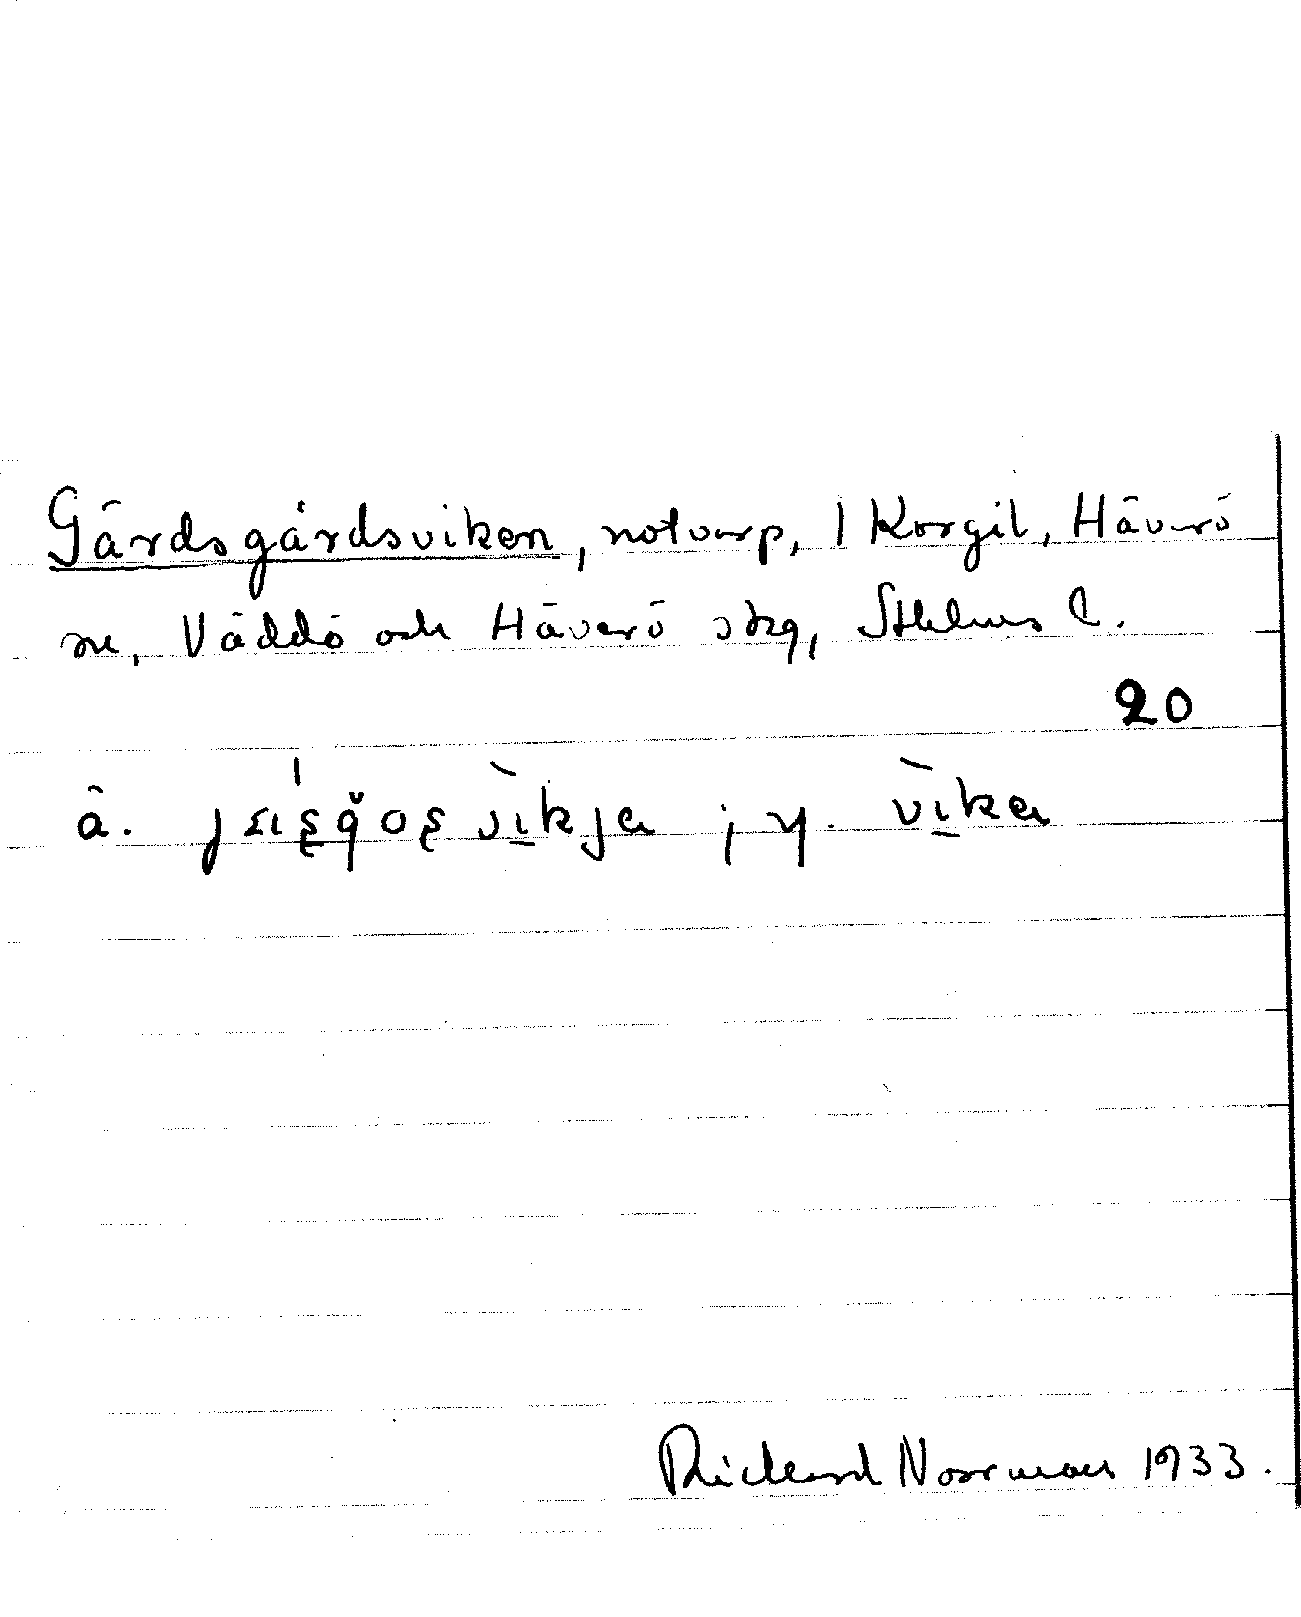 Gärdsgårdsviken, notvarp, 1 Korgil, Häverö
sn, Väddö och Häverö skg, Sthlms l.
20
ä. ; y. vika
Rickard Norrman 1933.